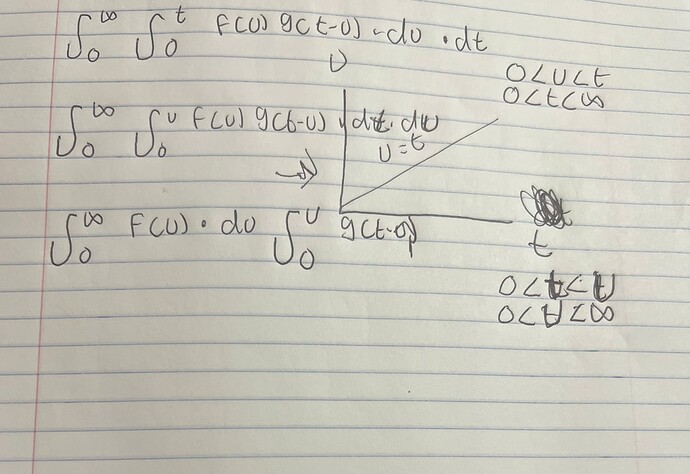 ∫₀^∞ ∫₀^t F(U) g(t-U) · dU · dt
U
0<U<t
0<t<∞
∫₀^∞ ∫₀^U F(U) g(t-U) dt · dU
U=t
→
∫₀^∞ F(U) · dU ∫₀^U g(t-U)
t
0<t<U
0<U<∞